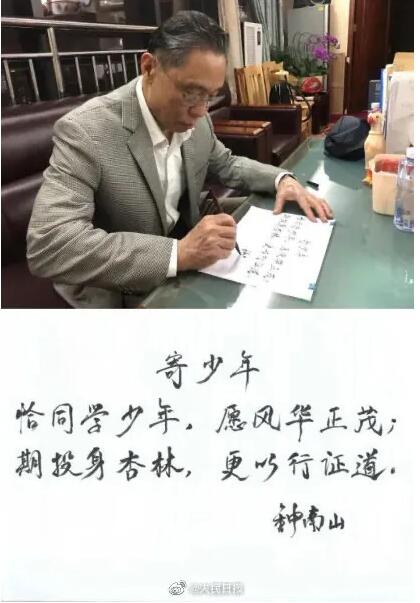 寄少年
恰同学少年，愿风华正茂；
期投身杏林，更以行证道．
钟南山
@人民日报